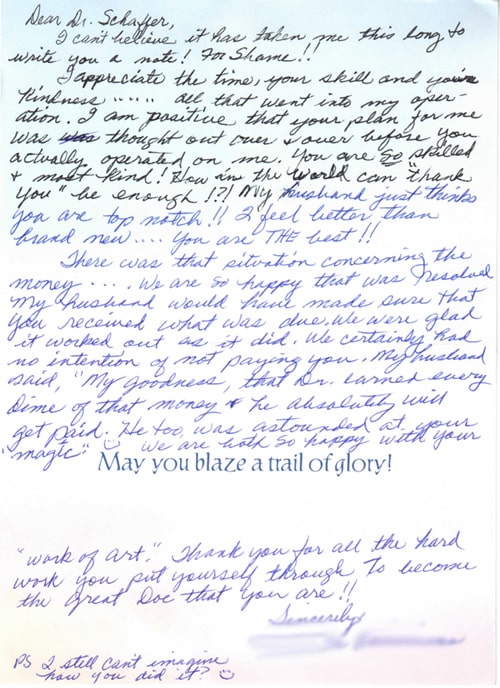 Dear Dr. Schaffer,
I can't believe it has taken me this long to
write you a note! For Shame!!
I appreciate the time, your skill and your
kindness ..... all that went into my oper-
ation. I am positive that your plan for me
was was thought out over & over before you
actually operated on me. You are so skilled
& most kind! How in the world can "thank
you" be enough !?! My husband just thinks
you are top notch!! I feel better than
brand new.... You are THE best!!
There was that situation concerning the
money .... We are so happy that was resolved
My husband would have made sure that
you received what was due. We were glad
it worked out as it did. We certainly had
no intention of not paying you. My husband
said, "My goodness, that Dr. earned every
Dime of that money & he absolutely will
get paid. He too, was astounded at your
"magic" We are both so happy with your
May you blaze a trail of glory!
"work of art." Thank you for all the hard
work you put yourself through to become
the great Doc that you are!!
Sincerily
PS I still can't imagine
how you did it?